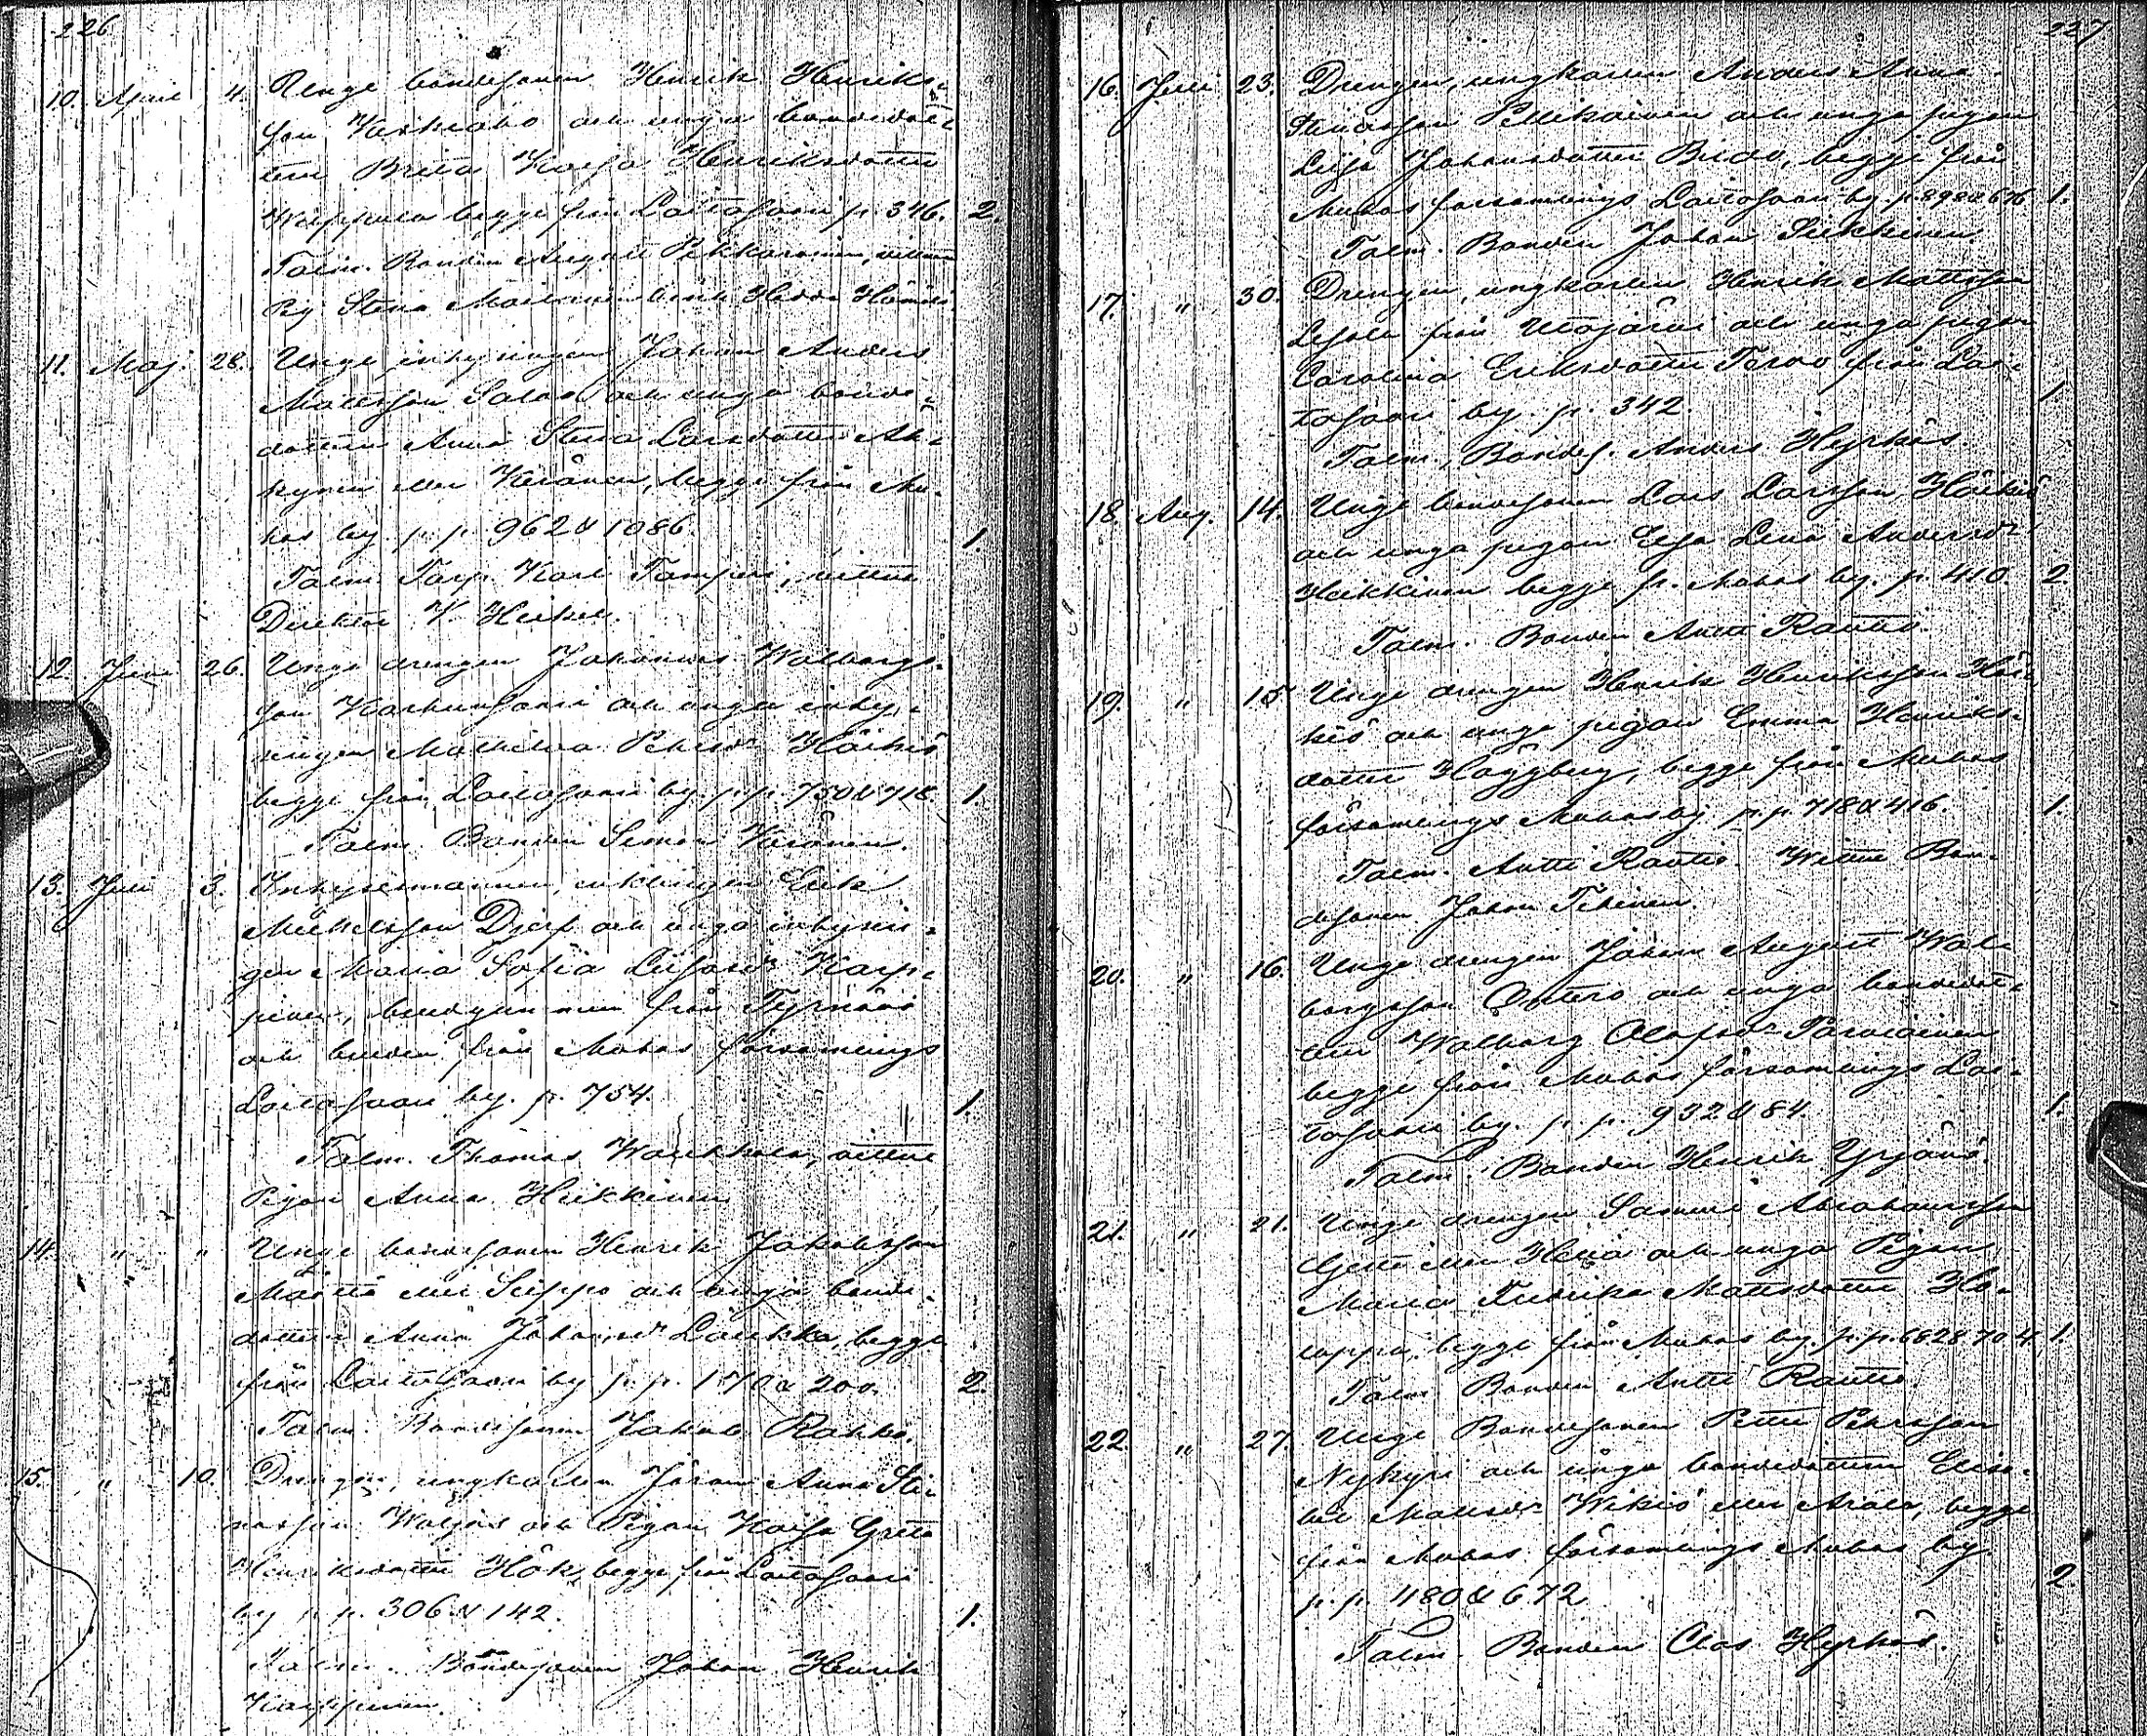 226
10. April 4. Unge bondesonen Henrik Henriks-
son Keskiaho och unga bondedot-
tern Brita Kajsa Henriksdotter
begge från Laitasaari p. 346. 2.
Talm. Bonden August Pekkarinen, vittne
Pig. Stina
11. Maj. 28. Unge inhysingen Johan Anders
Mattsson Salo och unga bonde-
dottern Anna Stina Larsdotter
eller Keränen, begge från Mu-
hos by. p. p. 962 & 1086. 1.
Talm. Torp. Karl Tamperi, vittne
Direktör V. Heikel.
12. Juni 26. Unge drengen Johannes Walborgs-
son Karhunsaari och unga inhy-
singen Mathilda Petersdr Härkiö
begge från Laitasaari by. p. p. 750 & 718. 1.
Talm. Bonden Simon Keränen.
13. Juli 3. Inhysesmannen, enklingen Erik
Mickelsson Djerf och unga inhysin-
gen Maria Sofia Karp-
pinen, brudgummen från Tyrnävä
och bruden från Muhos församlings
Laitasaari by. p. 754. 1.
Talm. Thomas vittne
Pigan Anna Heikkinen
14. " " Unge bondesonen Henrik Jakobsson
Määttä eller Seppo och unga bonde-
dottern Anna Johansdr Laukka, begge
från Laitasaari by p. p. 170 & 200. 2.
Talm. Bondesonen Jakob Rahko.
15. " 10. Drengen, ungkarlen Johan Anna Sti-
nasson och Pigan Kajsa Greta
Henriksdotter Hök, begge från Laitasaari
by p. p. 306 & 142. 1.
Talm. Bondesonen Johan Henrik
Karppinen.
227
16. Juli 23. Drengen, ungkarlen Anders Anna
Stinasson Pellikainen och unga pigan
Lisa Johansdotter begge från
Muhos församlings Laitasaari by. p. 898 & 676 1.
Talm. Bonden Johan Heikkinen.
17. " 30. Drengen, ungkarlen Henrik Mattsson
från Utajärvi och unga pigan
Carolina Eriksdotter Tervo från Lai-
tasaari by. p. 342. 1.
Talm. Bondes. Anders Hyrkäs.
18. Aug. 14. Unge bondesonen Lars Larsson Härkiö
och unga pigan Elsa Lena Andersdr
Heikkinen begge fr. Muhos by. p. 410. 2.
Talm. Bonden Antti Rautio.
19. " 15. Unge drengen Henrik Henriksson Här-
kiö och unga pigan Emma Henriks-
dotter Häggberg, begge från Muhos
församlings Muhos by p. p. 718 & 416. 1.
Talm. Antti Rautio. Wittne Bon-
desonen Johan Tihinen.
20. " 16. Unge drengen Johan August Wal-
borgsson Ontero och unga bondedot-
tern Walborg Olofsdr
begge från Muhos församlings Lai-
tasaari by. p. p. 932 & 84. 1.
Talm. Bonden Henrik Yrjänä.
21. " 21. Unge drengen Samuel Abrahamsson
eller och unga Pigan
Maria Fredrika Mattsdotter
begge från Muhos by. p. p. 662 & 704. 1.
Talm. Bonden Antti Rautio.
22. " 27. Unge Bondesonen Petter Petersson
Nykyri och unga bondedottern Elisa-
bet Mattsdr eller Ahola, begge
från Muhos församlings Muhos by
p. p. 480 & 672 2.
Talm. Bonden Clas Hyrkäs.